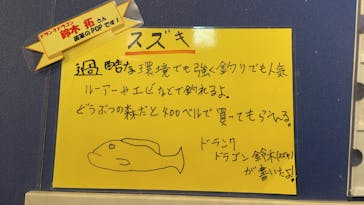 ドランクドラゴン
鈴木 拓さん
直筆のPOPです！
スズキ
過酷な環境でも強く釣りでも人気
ルアーやエビなどで釣れるよ。
どうぶつの森だと400ベルで買ってもらえる。
ドランク
ドラゴン 鈴木(拓)
が書いたよ！